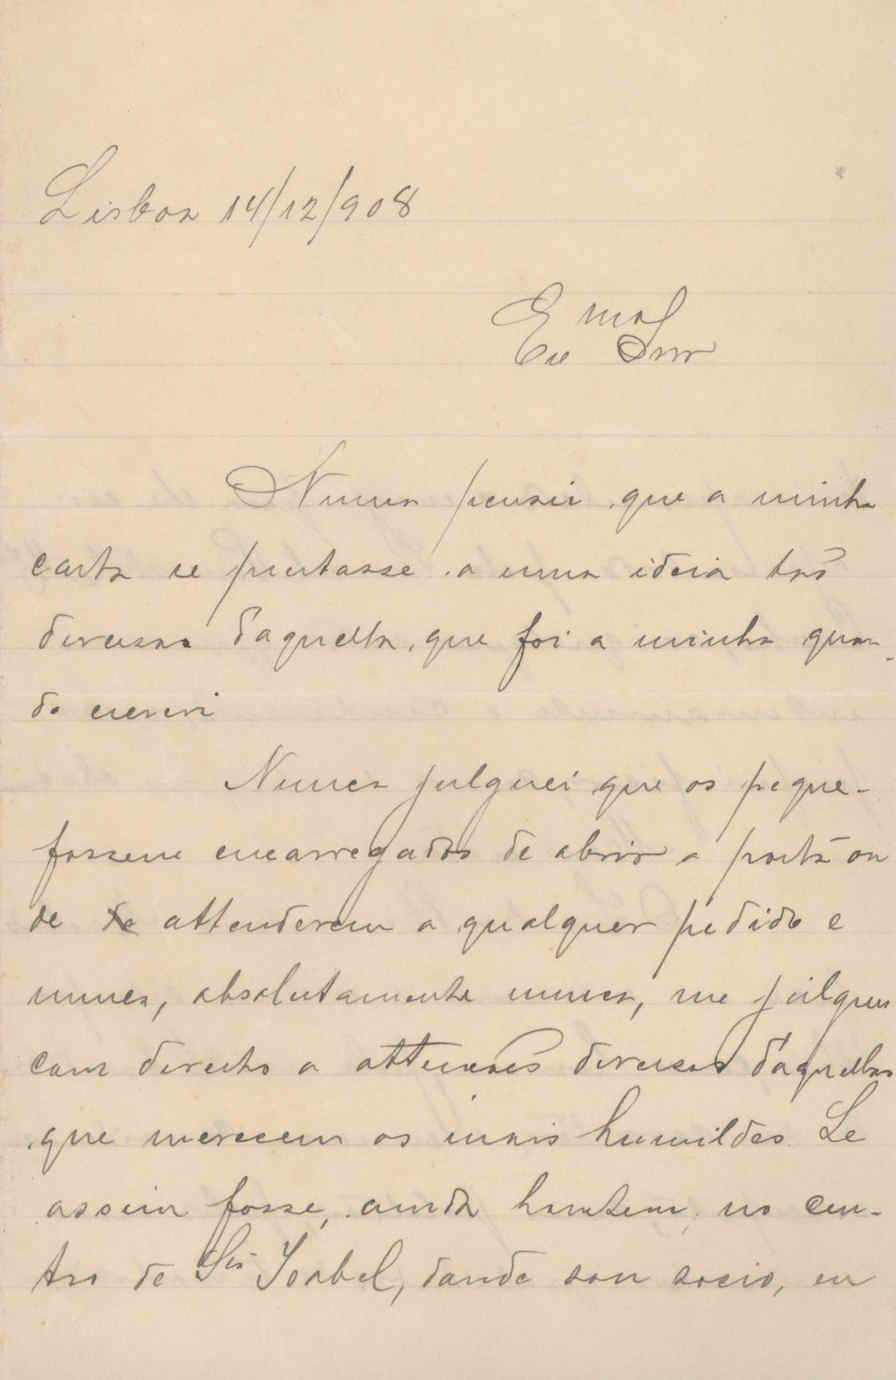 Lisboa 14/12/908
Exmo Snr
Nunca pensei que a minha
carta se prestasse a uma ideia tão
diversa d'aquella, que foi a minha quan-
do escrevi
Nunca julguei que os peque-
fossem encarregados de abrir a porta ou
de attenderem a qualquer pedido e
nunca, absolutamente nunca, me julguei
com direito a attenções diversas d'aquellas
que merecem os mais humildes. Se
assim fosse, ainda hontem, no cen-
tro de Sta Isabel, donde sou socio, eu